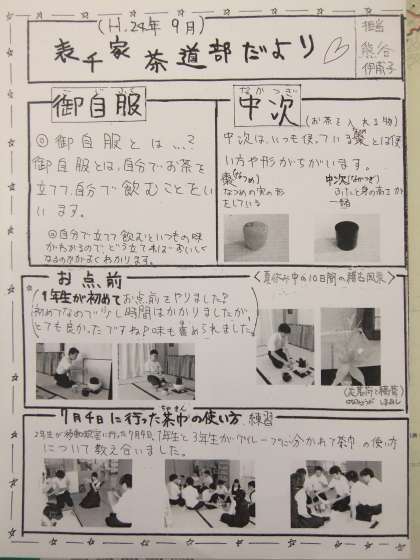 (H.24年 9月)
表千家 茶道部だより
担当
熊谷
御自服
◎御自服とは…?
御自服とは、自分でお茶を
立てて、自分で飲むことをい
います。
中次
なかつぎ
(お茶を入れる物)
中次は、いつも使っている棗とは使
い方や形がちがいます。
棗(なつめ)
なつめの実の形
をしている
中次(なかつぎ)
ふたと身の高さが
一緒
◎自分で立てて飲むといつもの味
がわかるのでどう立てればおいしく
なるのかがよくわかります。
お点前
1年生が初めてお点前をやりました?
初めてなので少し時間はかかりましたが、
とても良かったですね?味も褒められました。
<夏休み中の10日間の稽古風景>
7月4日に行った茶巾の使い方 練習
ちゃきん
2年生が移動教室に行った7月4日、1年生と3年生がグループに分かれて茶巾の使い方
について教え合いました。